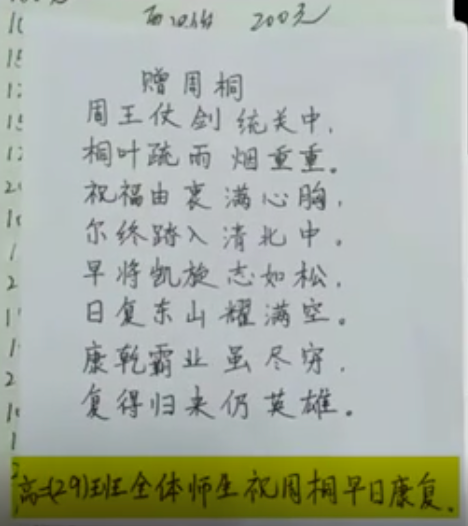 200元
赠周桐
周王仗剑统关中，
桐叶疏雨烟重重。
祝福由衷满心胸，
尔终踏入清北中。
早将凯旋志如松，
日复东山耀满空。
康乾霸业虽尽穷，
复得归来仍英雄。
高二(29)班全体师生祝周桐早日康复。